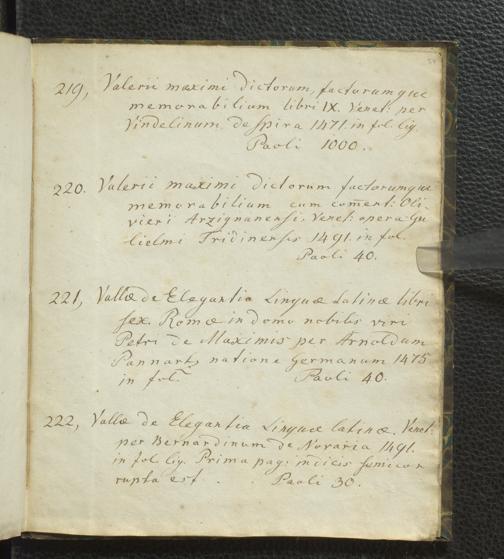 219, Valerii maximi dictorum, factorumque
memorabilium libri IX. Venet: per
Vindelinum de Spira 1471. in fol. lig.
Paoli 1000.
220. Valerii maximi dictorum factorumque
memorabilium cum com̄ent: Oli
vieri Arzignanensis. Venet: opera Gu
lielmi Tridinensis 1491. in fol.
Paoli 40.
221, Vallæ de Elegantia Linguæ Latinæ libri
sex. Romæ in domo nobilis viri
Petri de Maximis per Arnoldum
Pannartz natione Germanum 1475
in fol. Paoli 40.
222, Vallæ de Elegantia Linguæ latinæ. Venet:
per Bernardinum de Novaria 1491.
in fol. lig. Prima pag: indicis semicor
rupta est. Paoli 30.